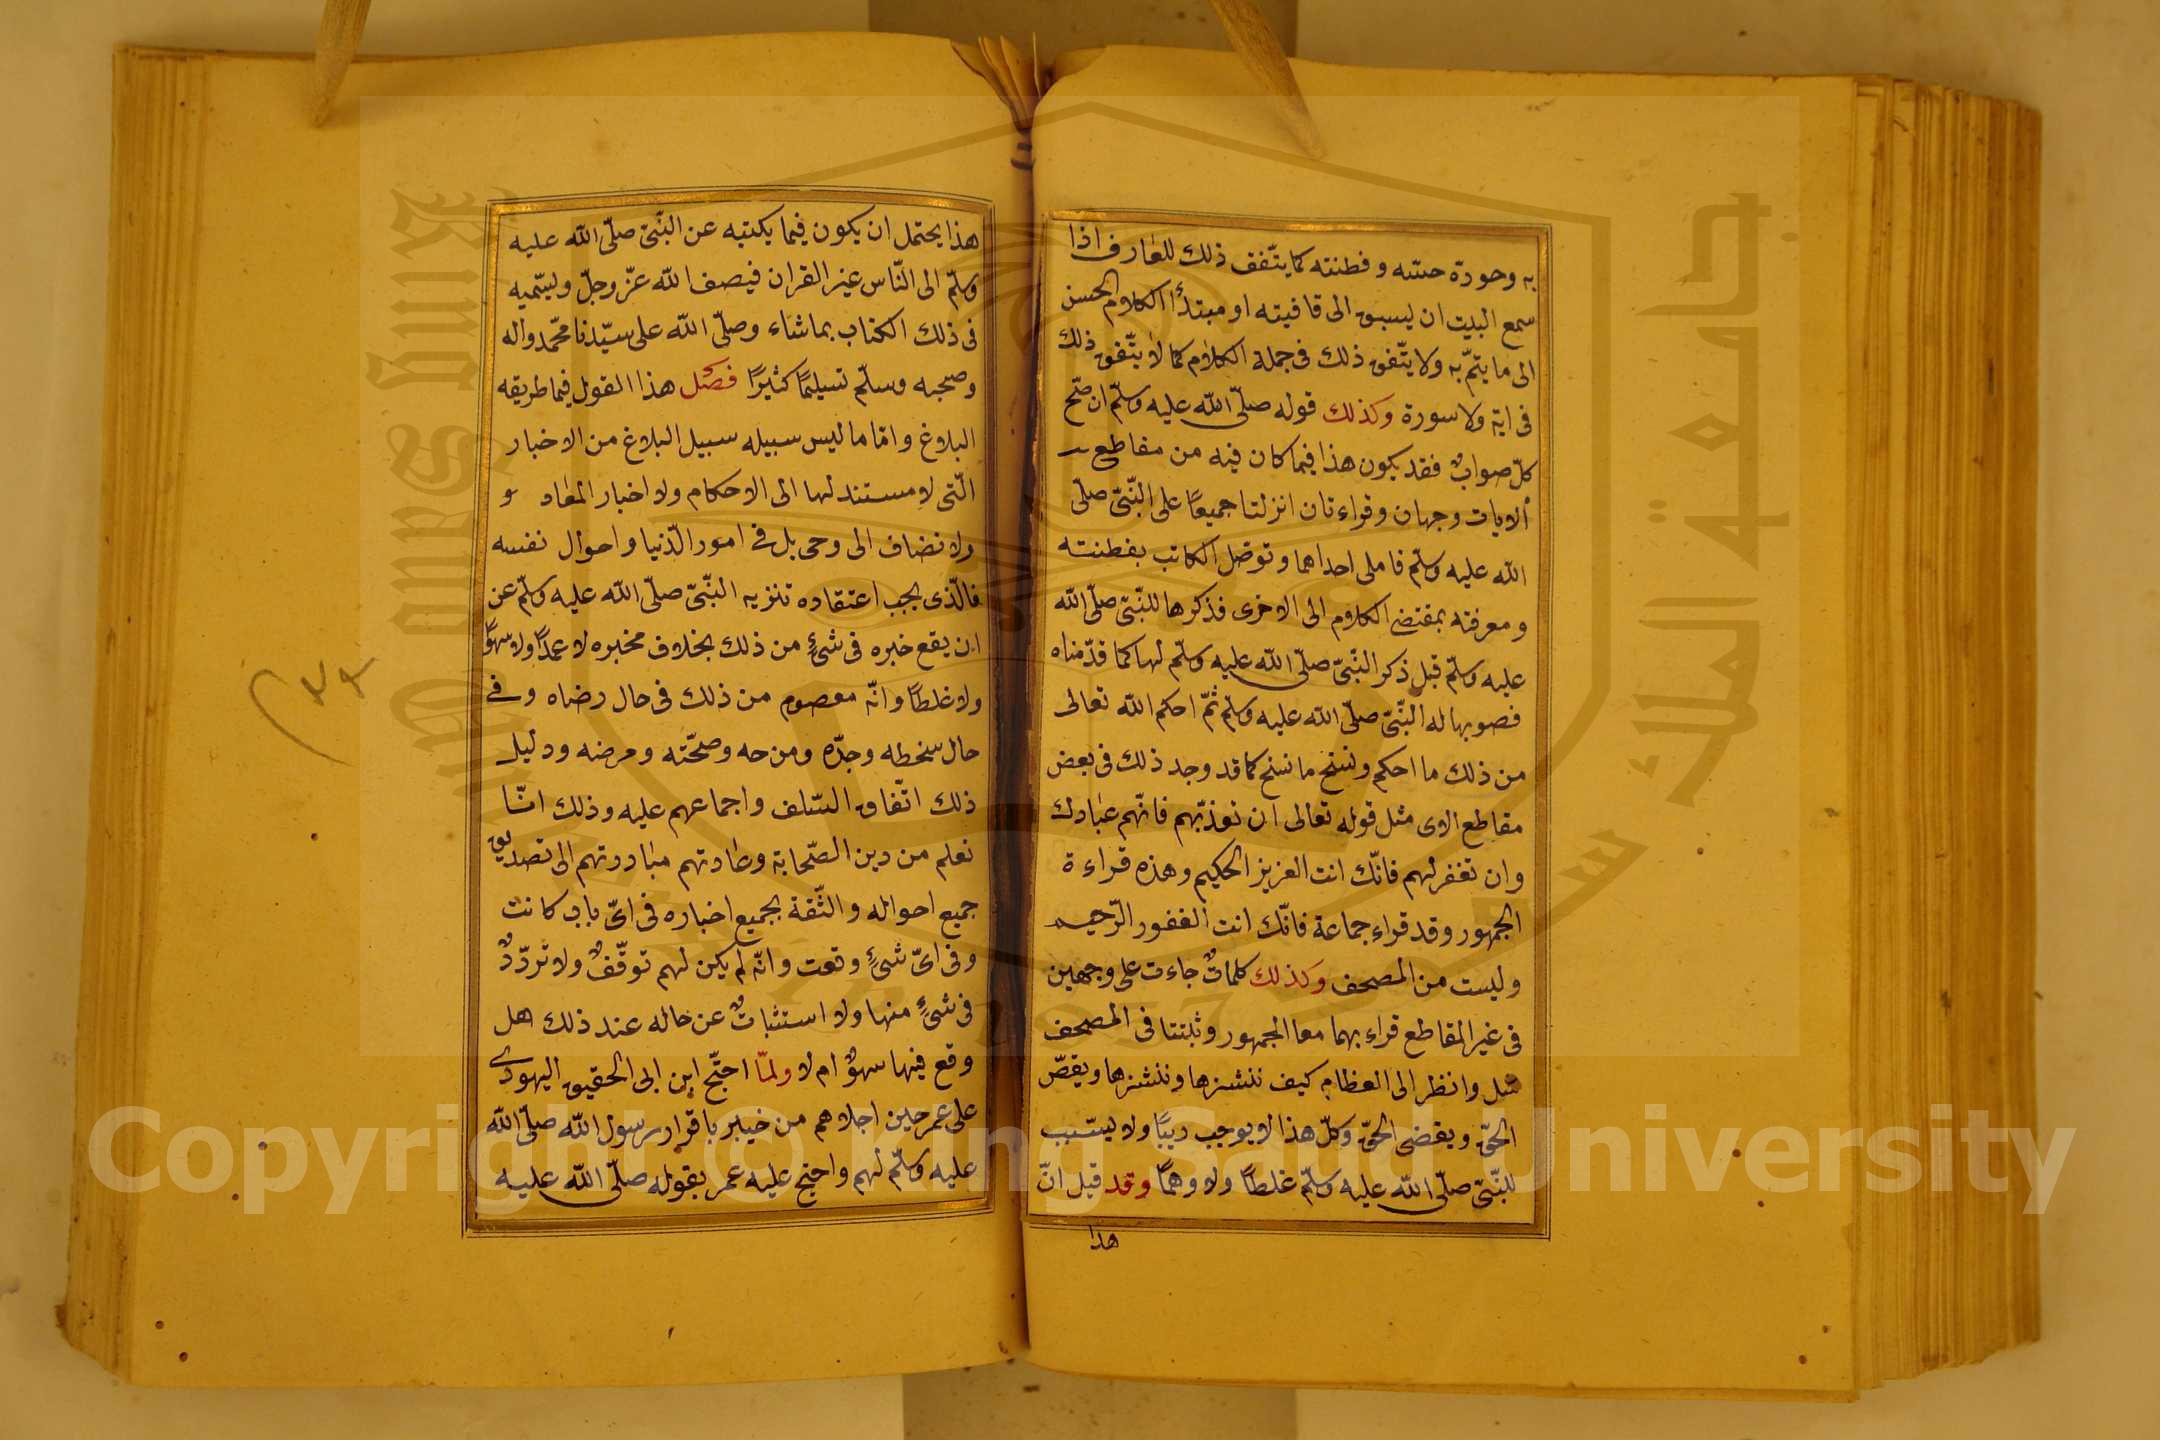 به وجودة حسّه وفطنته كما يتّفق ذلك للعارف اذا
سمع البيت ان يسبق الى قافيته او مبتدأ الكلام الحسن
الى ما يتمّ به ولا يتّفق ذلك فى جملة الكلام كما لا يتّفق ذلك
فى اية ولا سورة وكذلك قوله صلّى الله عليه وسلّم ان صحّ
كلّ صوابٌ فقد يكون هذا فيما كان فيه من مقاطع
الايات وجهان وقراءتان انزلتا جميعًا على النّبىّ صلّى
الله عليه وسلّم فاملى احداهما وتوصّل الكاتب بفطنته
ومعرفته بمقتضى الكلام الى الاخرى فذكرها للنّبىّ صلّى الله
عليه وسلّم قبل ذكر النّبىّ صلّى الله عليه وسلّم لها كما قدّمناه
فصوبها له النّبىّ صلّى الله عليه وسلّم ثمّ احكم الله تعالى
من ذلك ما احكم ونسخ ما نسخ كما قد وجد ذلك فى بعض
مقاطع الاى مثل قوله تعالى ان تعذّبهم فانّهم عبادك
وان تغفر لهم فانّك انت العزيز الحكيم وهذه قراءة
الجمهور وقد قراء جماعة فانّك انت الغفور الرّحيم
وليست من المصحف وكذلك كلماتٌ جاءت على وجهين
فى غير المقاطع قراء بهما معا الجمهور وثبتتا فى المصحف
مثل وانظر الى العظام كيف ننشرها وننشزها ويقصّ
الحقّ ويقضى الحقّ وكلّ هذا لا يوجب ريبًا ولا يسبّب
للنّبىّ صلّى الله عليه وسلّم غلطًا ولا وهمًا وقد قيل انّ
هذا
هذا يحتمل ان يكون فيما يكتبه عن النّبىّ صلّى الله عليه
وسلّم الى النّاس غير القران فيصف الله عزّ وجلّ ويسّميه
فى ذلك الكتاب بما شاء وصلّى الله على سيّدنا محمّد واله
وصحبه وسلّم تسليمًا كثيرًا فصل هذا القول فيما طريقه
البلاغ وامّا ما ليس سبيله سبيل البلاغ من الاخبار
الّتى لا مستند لها الى الاحكام ولا اخبار المعاد و
ولا تضاف الى وحى بل فى امور الدّنيا واحوال نفسه
فالّذى يجب اعتقاده تنزيه النّبىّ صلّى الله عليه وسلّم عن
ان يقع خبره فى شئٍ من ذلك بخلاف مخبره لا عمدًا ولا سهوًا
ولا غلطًا وانّه معصوم من ذلك فى حال رضاه وفى
حال سخطه وجدّه ومزحه وصحّته ومرضه ودليل
ذلك اتّفاق السّلف واجماعهم عليه وذلك انّا
نعلم من دين الصّحابة وعادتهم مبادرتهم الى تصديق
جميع احواله والثّقة بجميع اخباره فى اىّ باب كانت
وفى اىّ شئٍ وقعت وانّه لم يكن لهم توقّفٌ ولا تردّدٌ
فى شئٍ منها ولا استثباتٌ عن حاله عند ذلك هل
وقع فيها سهوٌ ام لا ولمّا احتجّ ابن ابى الحقيق اليهودى
على عمر حين اجلاهم من خيبر باقرار رسول الله صلّى الله
عليه وسلّم لهم واحتج عليه عمر بقوله صلّى الله عليه
جامعة الملك سعود
King Saud University
1957
Copyright © King Saud University